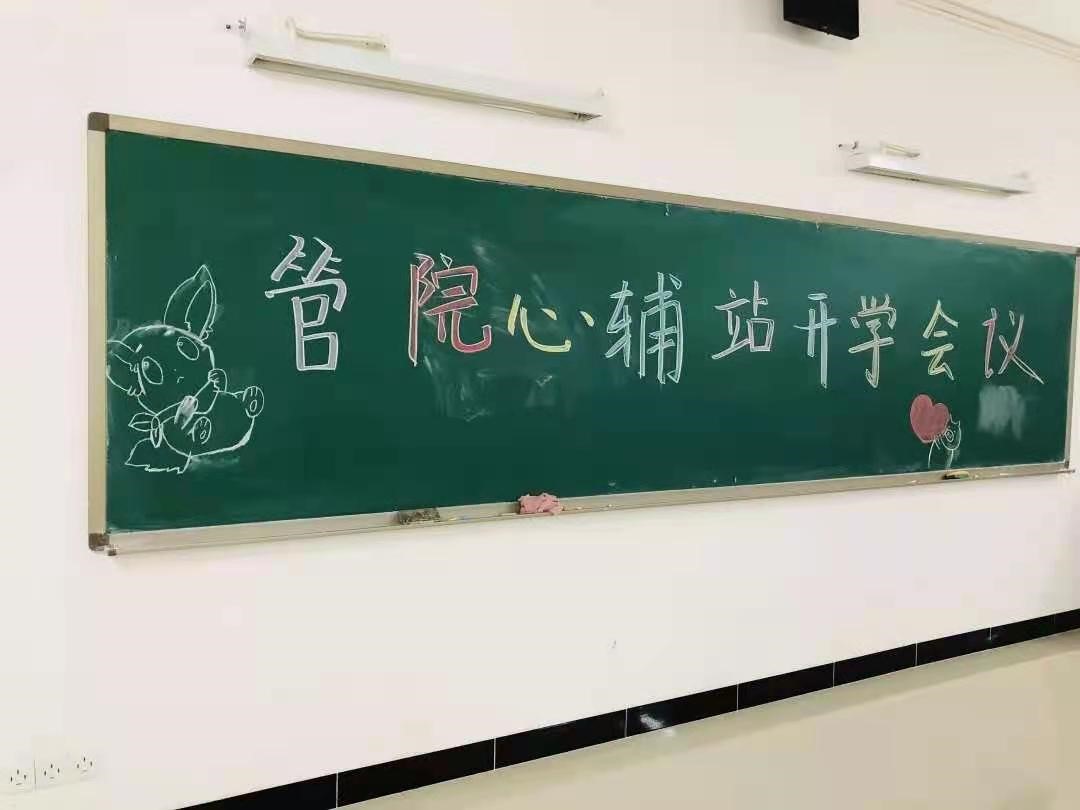 管院心辅站开学会议